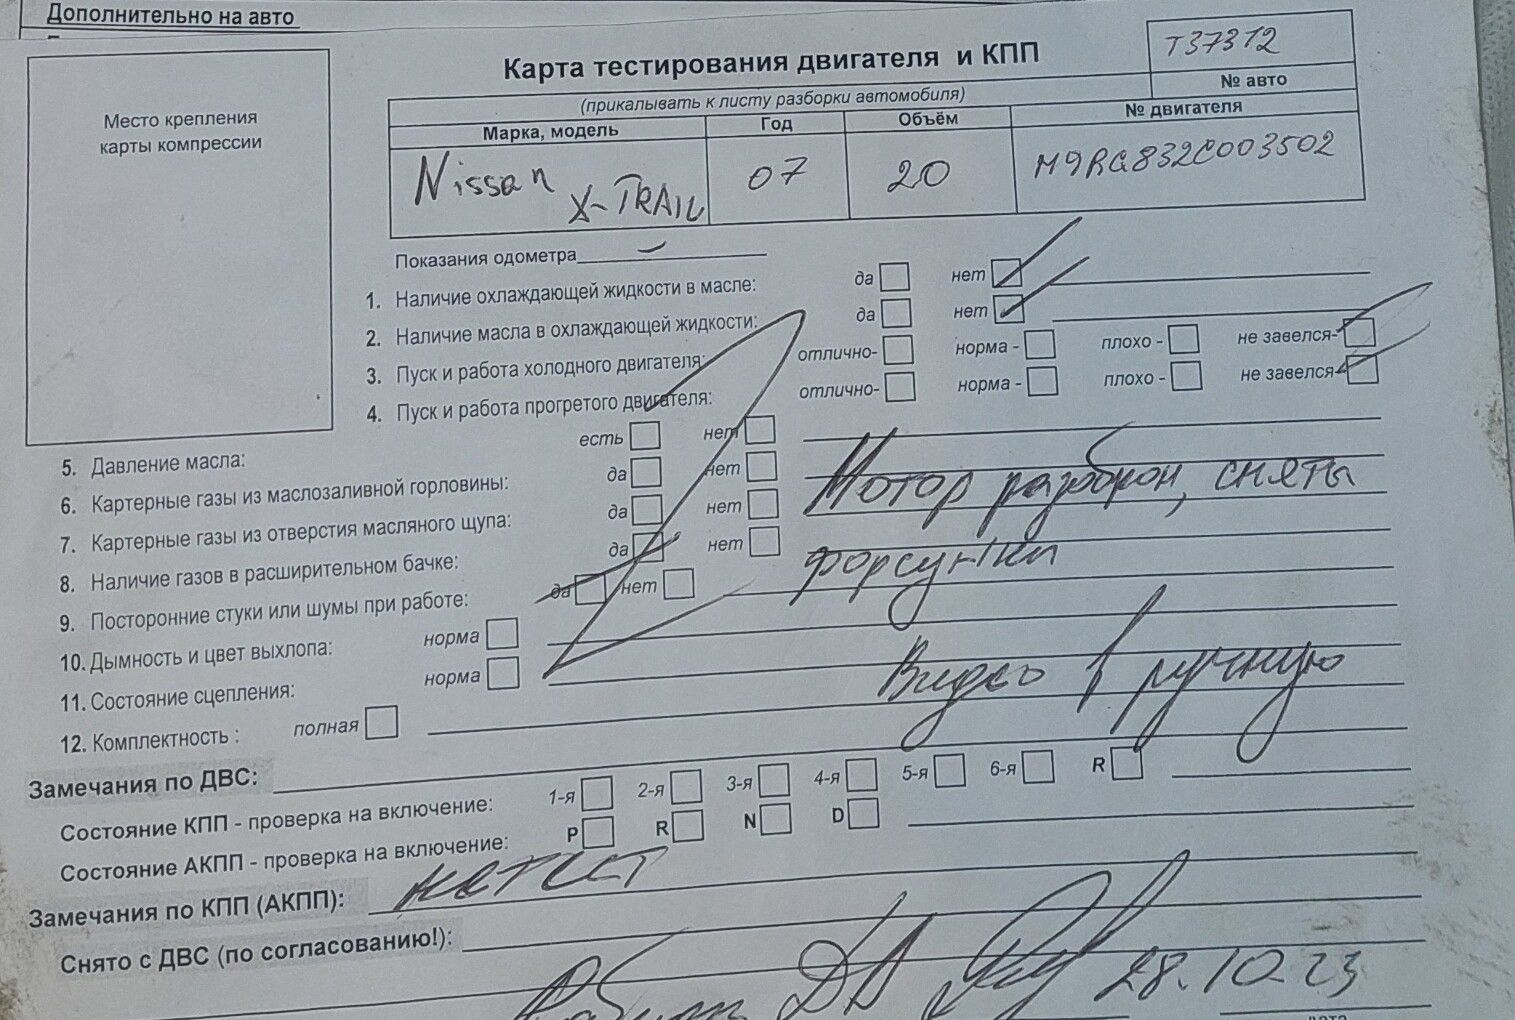 Дополнительно на авто
Место крепления
карты компрессии
Карта тестирования двигателя и КПП
Т37312
№ авто
(прикалывать к листу разборки автомобиля)
Марка, модель Год Объём № двигателя
Nissan X-TRAIL 07 20 M9RG832C003502
Показания одометра –
1. Наличие охлаждающей жидкости в масле: да нет
2. Наличие масла в охлаждающей жидкости: да нет
3. Пуск и работа холодного двигателя: отлично- норма - плохо - не завелся-
4. Пуск и работа прогретого двигателя: отлично- норма - плохо - не завелся-
5. Давление масла: есть нет
6. Картерные газы из маслозаливной горловины: да нет
7. Картерные газы из отверстия масляного щупа: да нет
8. Наличие газов в расширительном бачке: да нет
9. Посторонние стуки или шумы при работе: да нет
Мотор разобран, сняты
форсунки
10. Дымность и цвет выхлопа: норма
11. Состояние сцепления: норма
Видео в ручную
12. Комплектность : полная
Замечания по ДВС:
Состояние КПП - проверка на включение: 1-я 2-я 3-я 4-я 5-я 6-я R
Состояние АКПП - проверка на включение: P R N D
Замечания по КПП (АКПП): не тест
Снято с ДВС (по согласованию!):
28.10.23
дата